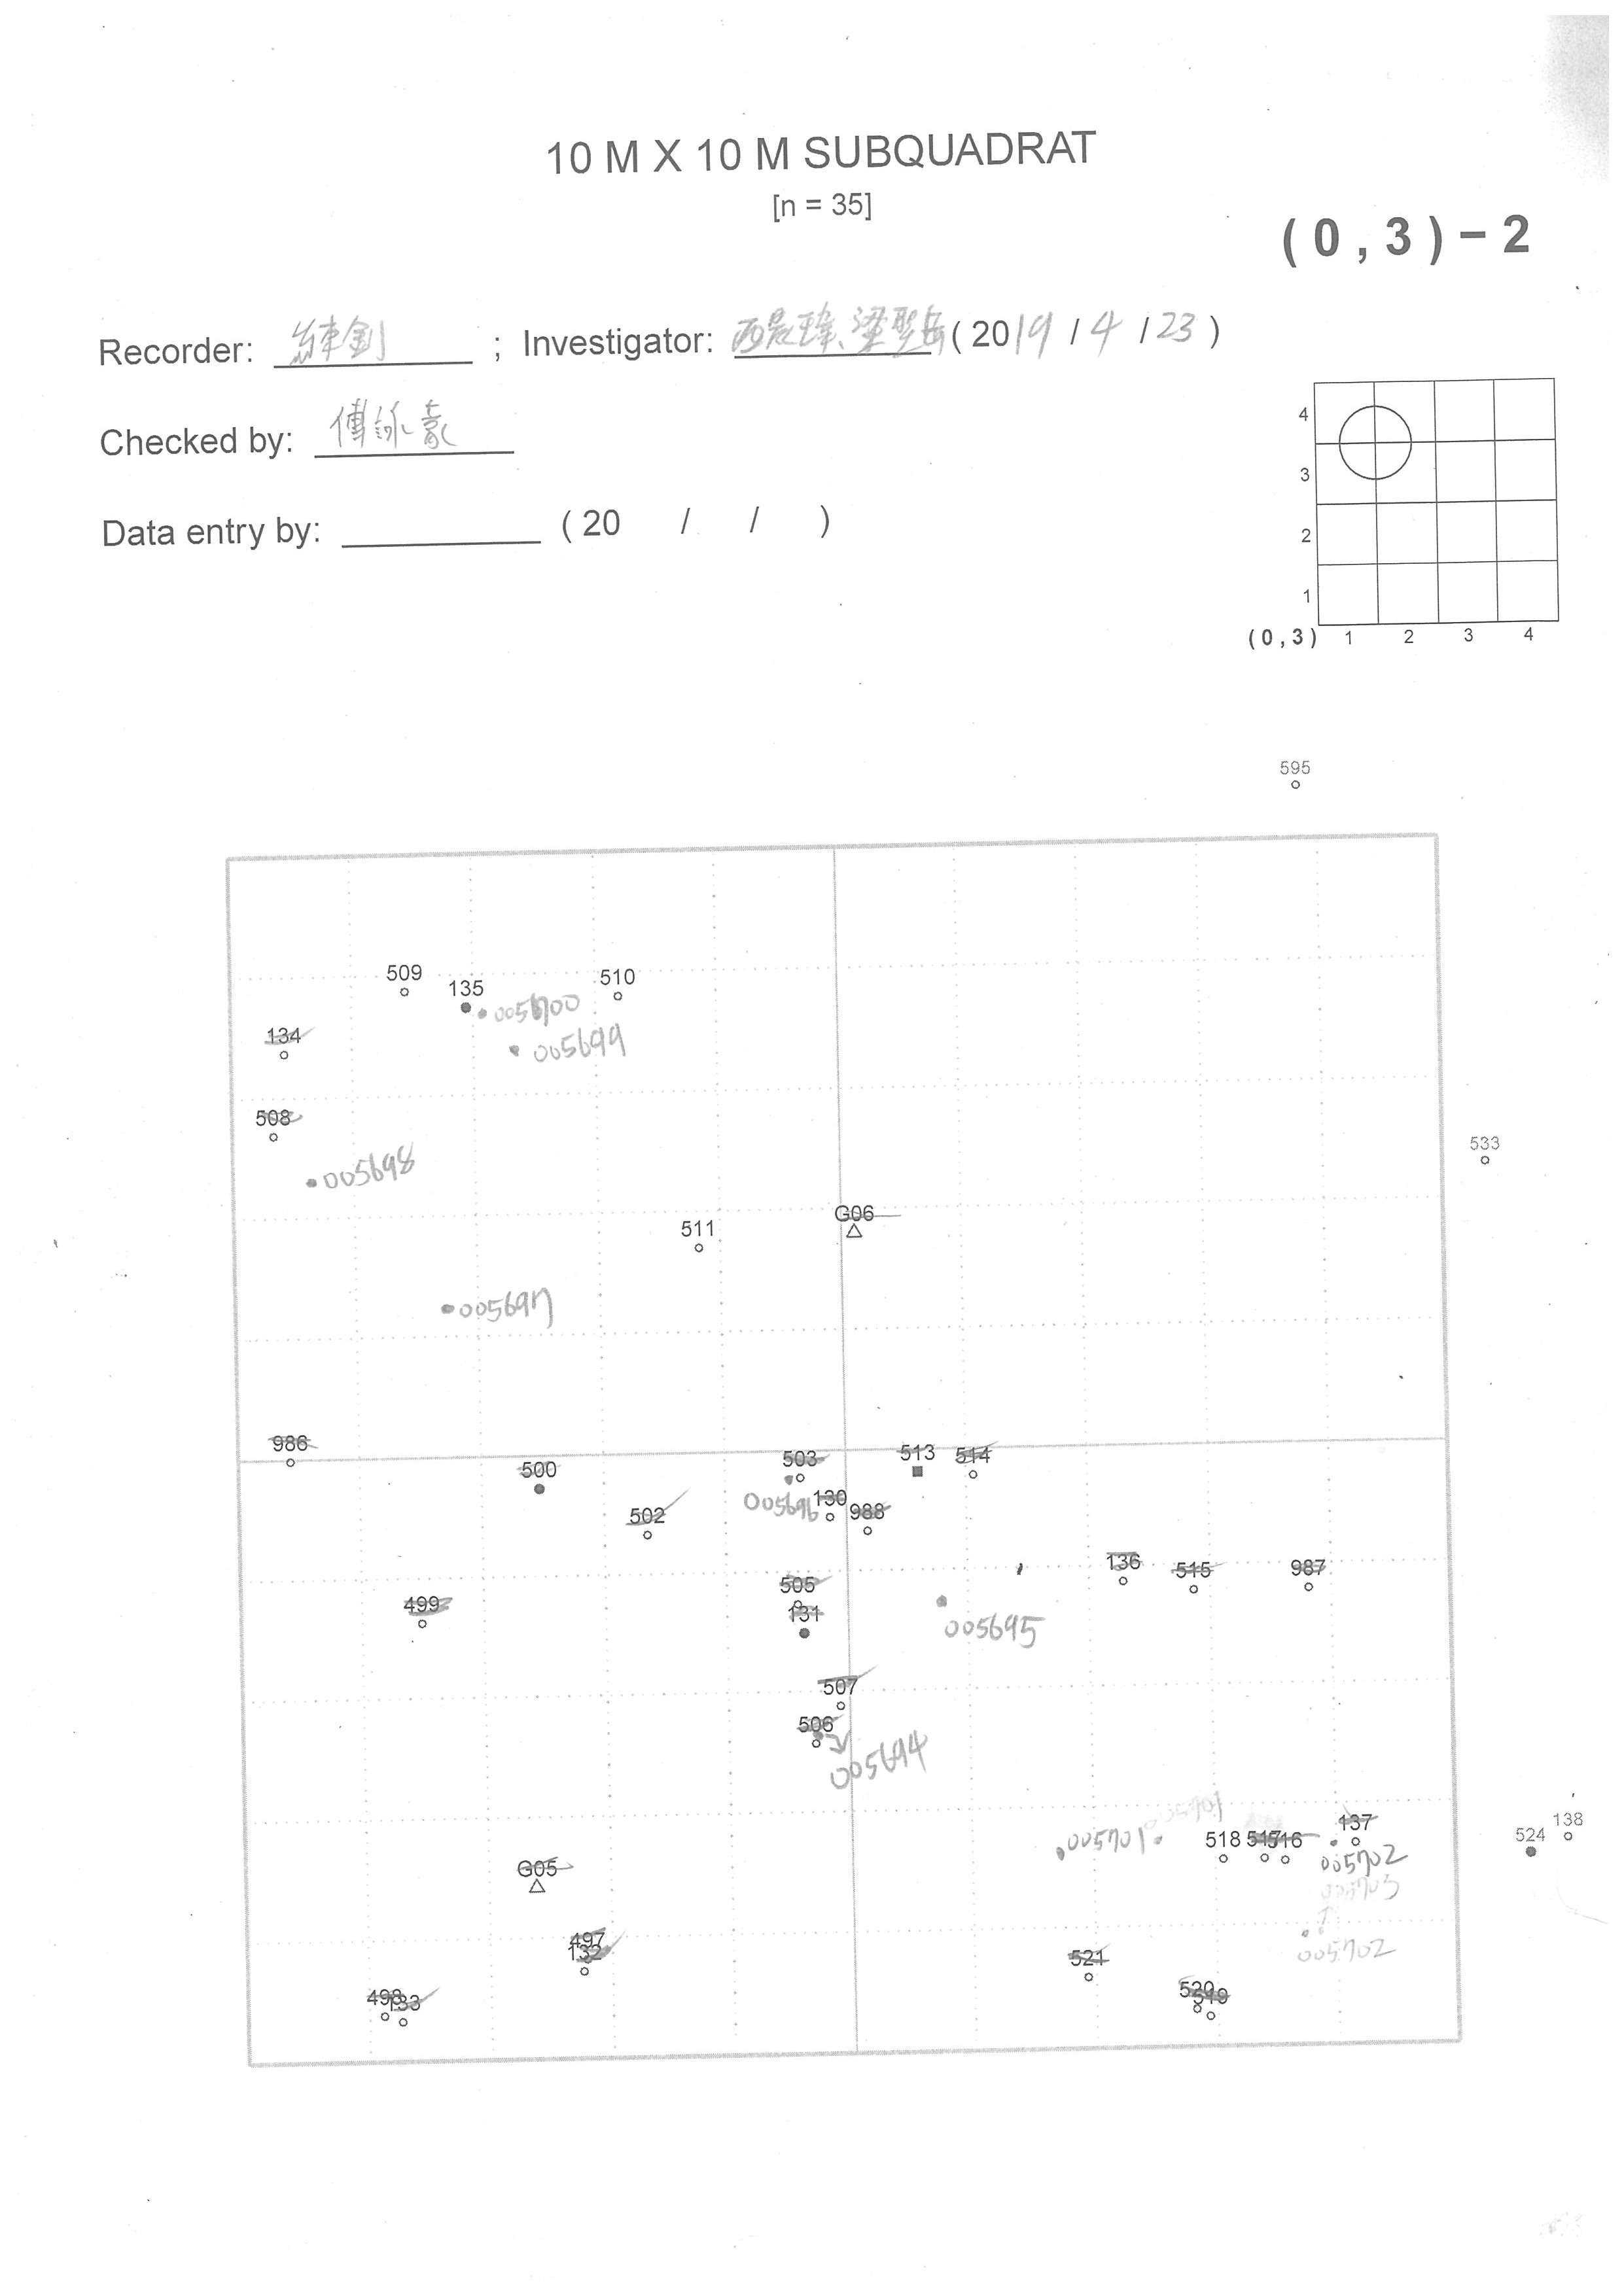 10 M X 10 M SUBQUADRAT
[n = 35]
(0,3)-2
Recorder: ; Investigator: (2019/4/23)
Checked by: 傅詠豪
Data entry by: (20 / / )
4
3
2
1
(0,3) 1 2 3 4
595
509
510
135
005700
134
005699
508
533
005698
G06
511
005697
986
503
513
514
500
005696
130
988
502
136
515
987
505
499
131
005695
507
506
005694
005701
137
138
518
517
516
005701
524
005702
G05
005703
497
132
005702
521
520
519
498
133